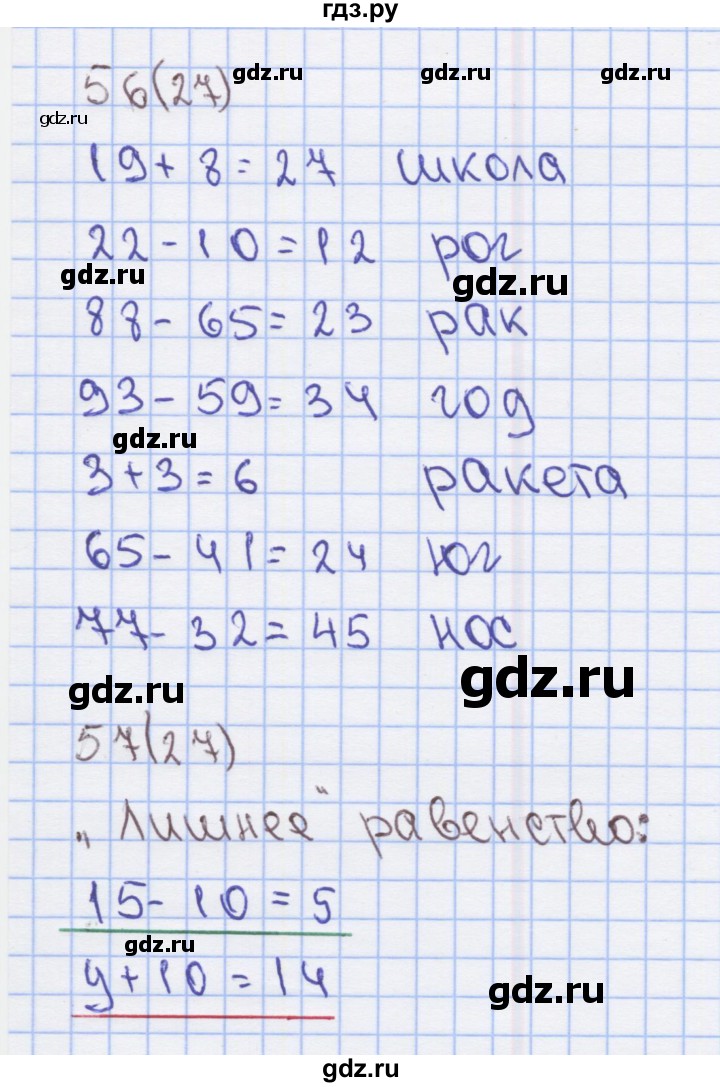 гдз.ру
56(27)
gdz.ru gdz.ru
gdz.ru
19+8=27 школа
22-10=12 рог
gdz.ru gdz.ru
88-65=23 рак
93-59=34 год
gdz.ru
3+3=6 ракета
65-41=24 юг
77-32=45 нос
gdz.ru gdz.ru
57(27)
„Лишнее“ равенство:
15-10=5
gdz.ru
y+10=14
gdz.ru
gdz.ru